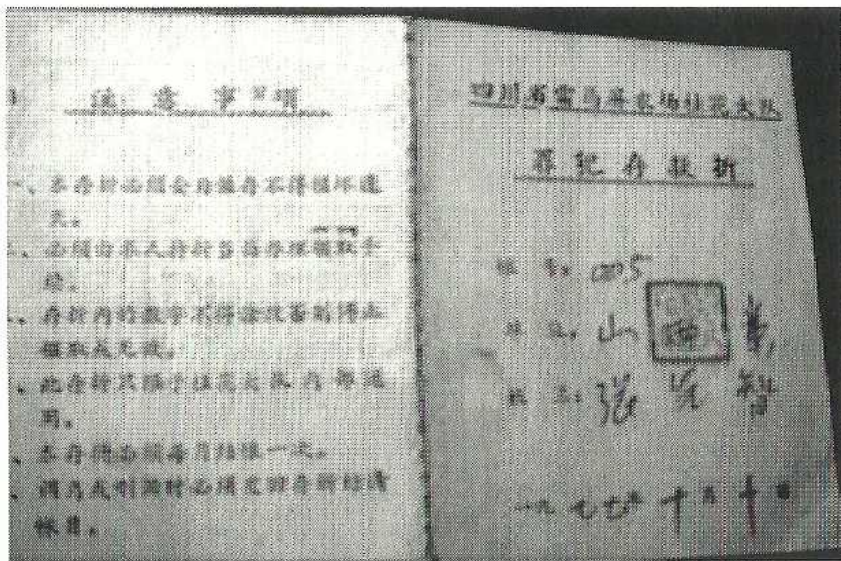 注意事项
一、本存折必须妥自保存不得损坏遗
失。
必须由本人持折当面办理领取手
续。
存折内的数字不得涂改否则停止
领取或无效。
此存折只限于桂花大队内部通
用。
本存折必须每月结账一次。
调离或刑满时必须交回存折结清
帐目。
四川省雷马屏农场桂花大队
罪犯存款折
帐号:005
单位:山
姓名:张先智
一九七七年十月十日